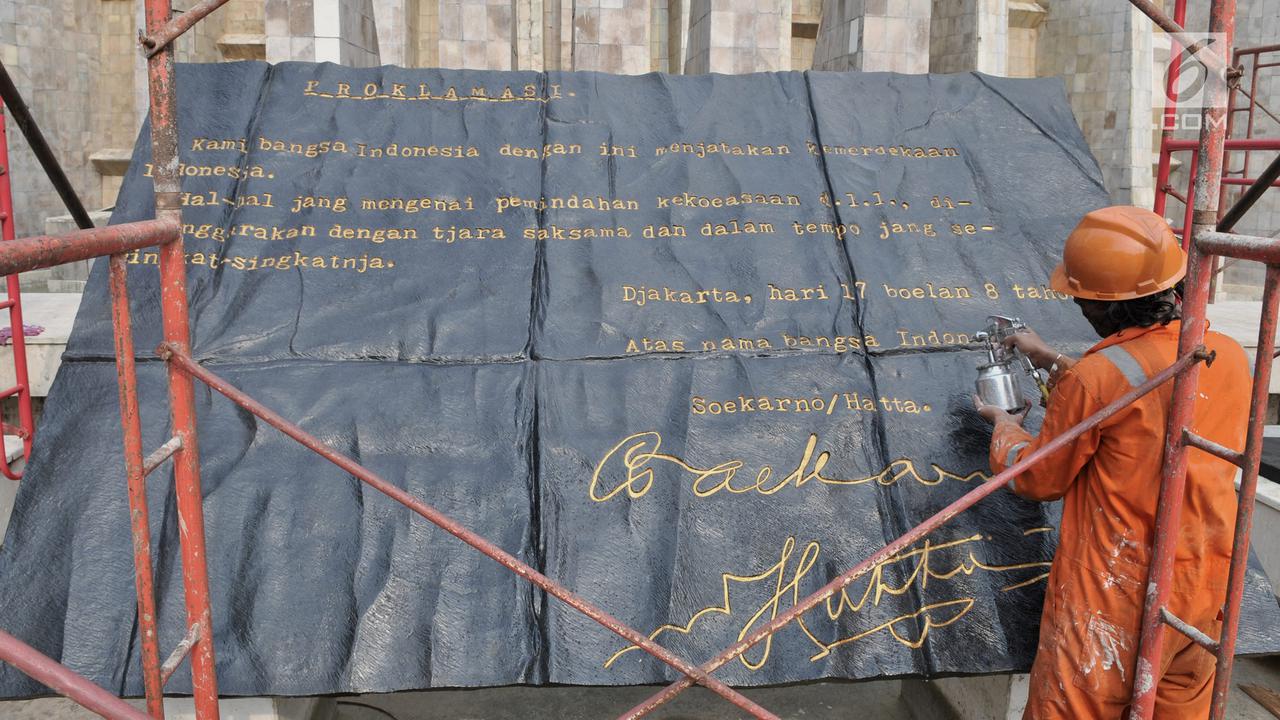 PROKLAMASI.
Kami bangsa Indonesia dengan ini menjatakan kemerdekaan
Indonesia.
Hal-hal jang mengenai pemindahan kekoeasaan d.l.l., di-
nggarakan dengan tjara saksama dan dalam tempo jang se-
ingkat-singkatnja.
Djakarta, hari 17 boelan 8 taho
Atas nama bangsa Indon
Soekarno/Hatta.
Soekarn
Hatta
6
.COM